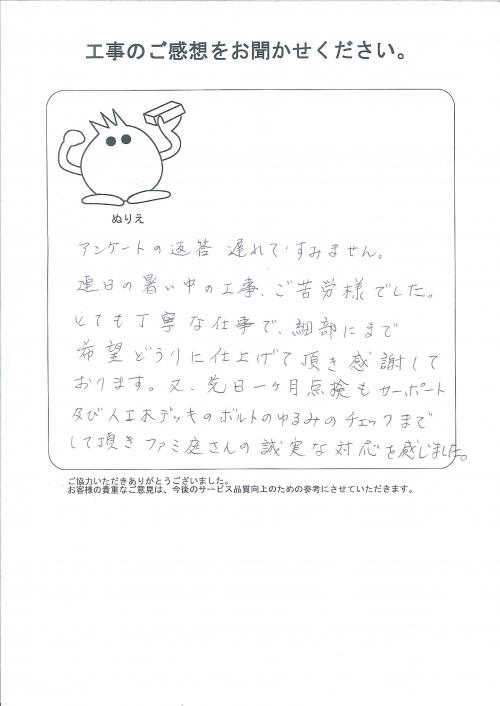 工事のご感想をお聞かせください。
ぬりえ
アンケートの返答 遅れてすみません。
連日の暑い中の工事、ご苦労様でした。
とても丁寧な仕事で、細部にまで
希望どうりに仕上げて頂き感謝して
おります。又、先日一ヶ月点検もカーポート
及び人工木デッキのボルトのゆるみのチェックまで
して頂きファミ庭さんの誠実な対応を感じました。
ご協力いただきありがとうございました。
お客様の貴重なご意見は、今後のサービス品質向上のための参考にさせていただきます。